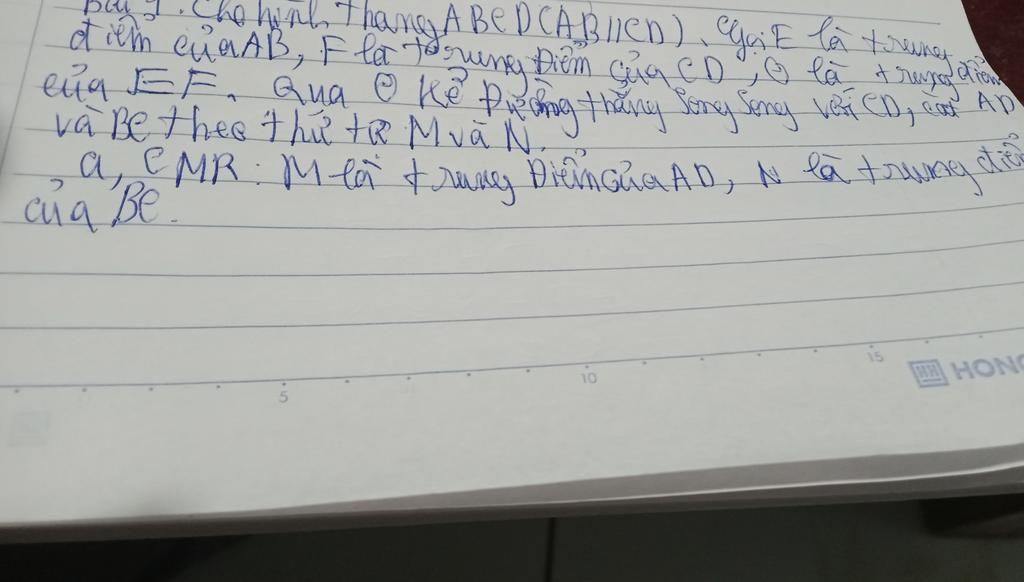 Bài 1. Cho hình thang ABCD (AB//CD). Gọi E là trung
điểm của AB, F là trung điểm của CD, O là trung điểm
của EF. Qua O kẻ Đường thẳng song song với CD, cắt AD
và BC theo thứ tự M và N.
a, CMR: M là trung Điểm của AD, N là trung điể
của BC.
5 10 15
HH HONG